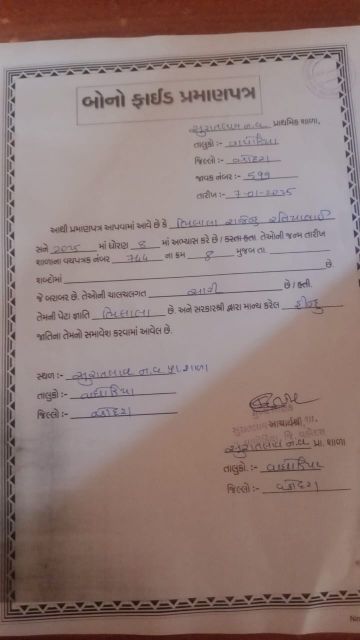 બોનો ફાઈડ પ્રમાણપત્ર
પ્રાથમિક શાળા,
તાલુકો :- વાઘોડિયા
જિલ્લો :- વડોદરા
જાવક નંબર :- 599
તારીખ :-
આથી પ્રમાણપત્ર આપવામાં આવે છે કે
સને માં ધોરણ 8 માં અભ્યાસ કરે છે / કરતા હતા. તેઓની જન્મ તારીખ
શાળાના વયપત્રક નંબર 744 ના ક્રમ 8 મુજબ તા.
શબ્દોમાં છે.
જે બરાબર છે. તેઓની ચાલચલગત સારી છે / હતી.
તેમની પેટા જ્ઞાતિ છે. અને સરકારશ્રી દ્વારા માન્ય કરેલ હિન્દુ
જાતિના તેમનો સમાવેશ કરવામાં આવેલ છે.
સ્થળ :- ન.વ. પ્રા. શાળા
તાલુકો :- વાઘોડિયા
જિલ્લો :- વડોદરા
આચાર્યશ્રી,
ન.વ. પ્રા. શાળા
તાલુકો :- વાઘોડિયા
જિલ્લો :- વડોદરા